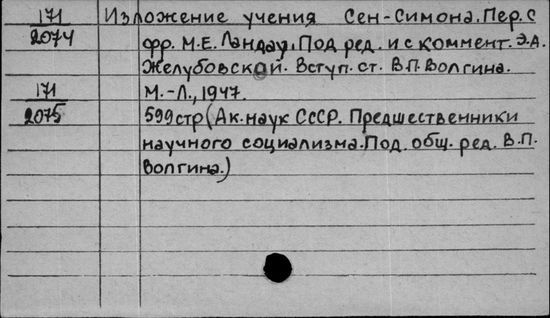 171 Изложение учения Сен-Симона. Пер. с
2074 фр. М.Е. Ландау. Под ред. и с коммент. Э.А.
Желубовской. Вступ. ст. В.П. Волгина.
171 М.-Л., 1947.
2075 599 стр (Ак. наук СССР. Предшественники
научного социализма. Под. общ. ред. В.П.
Волгина.)